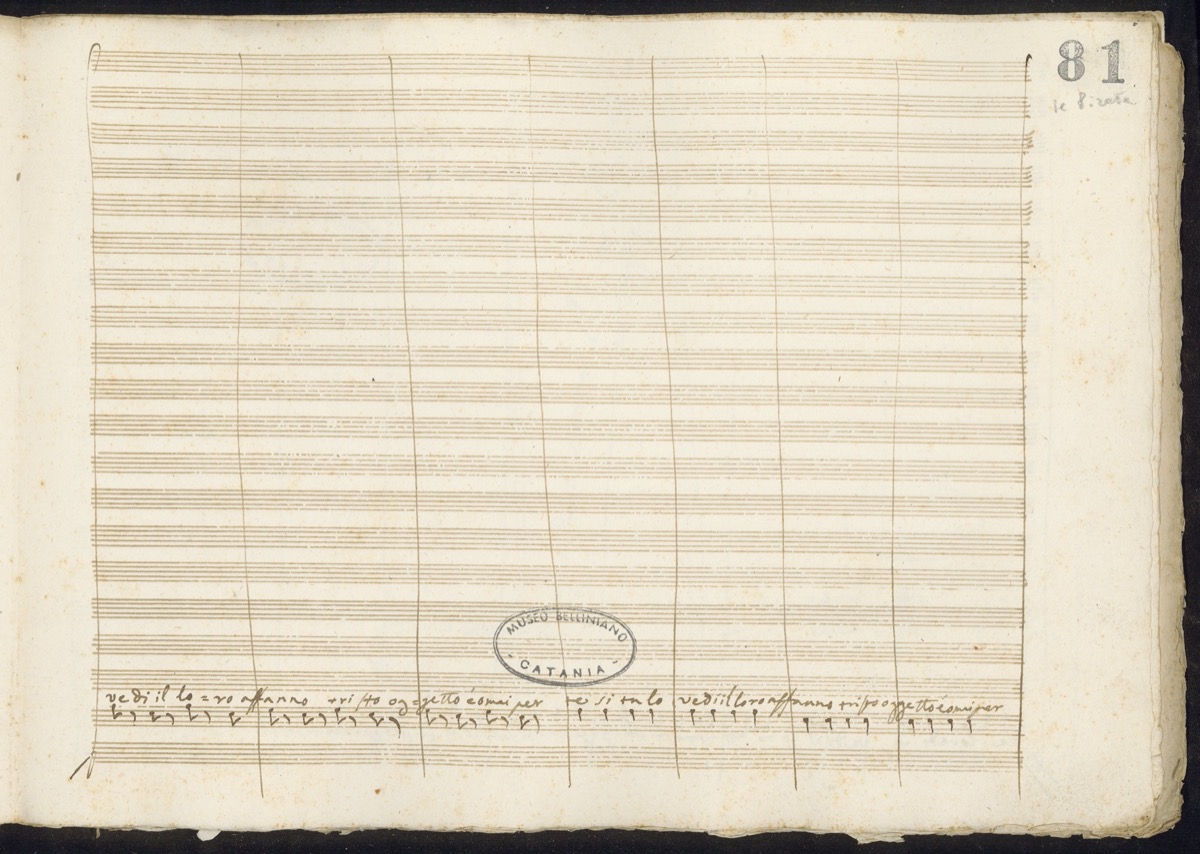 81
MUSEO BELLINIANO
- CATANIA -
vedi il lo=ro affanno tristo og=getto è omai per te si tu lo vedi il loro affanno tristo oggetto è omai per